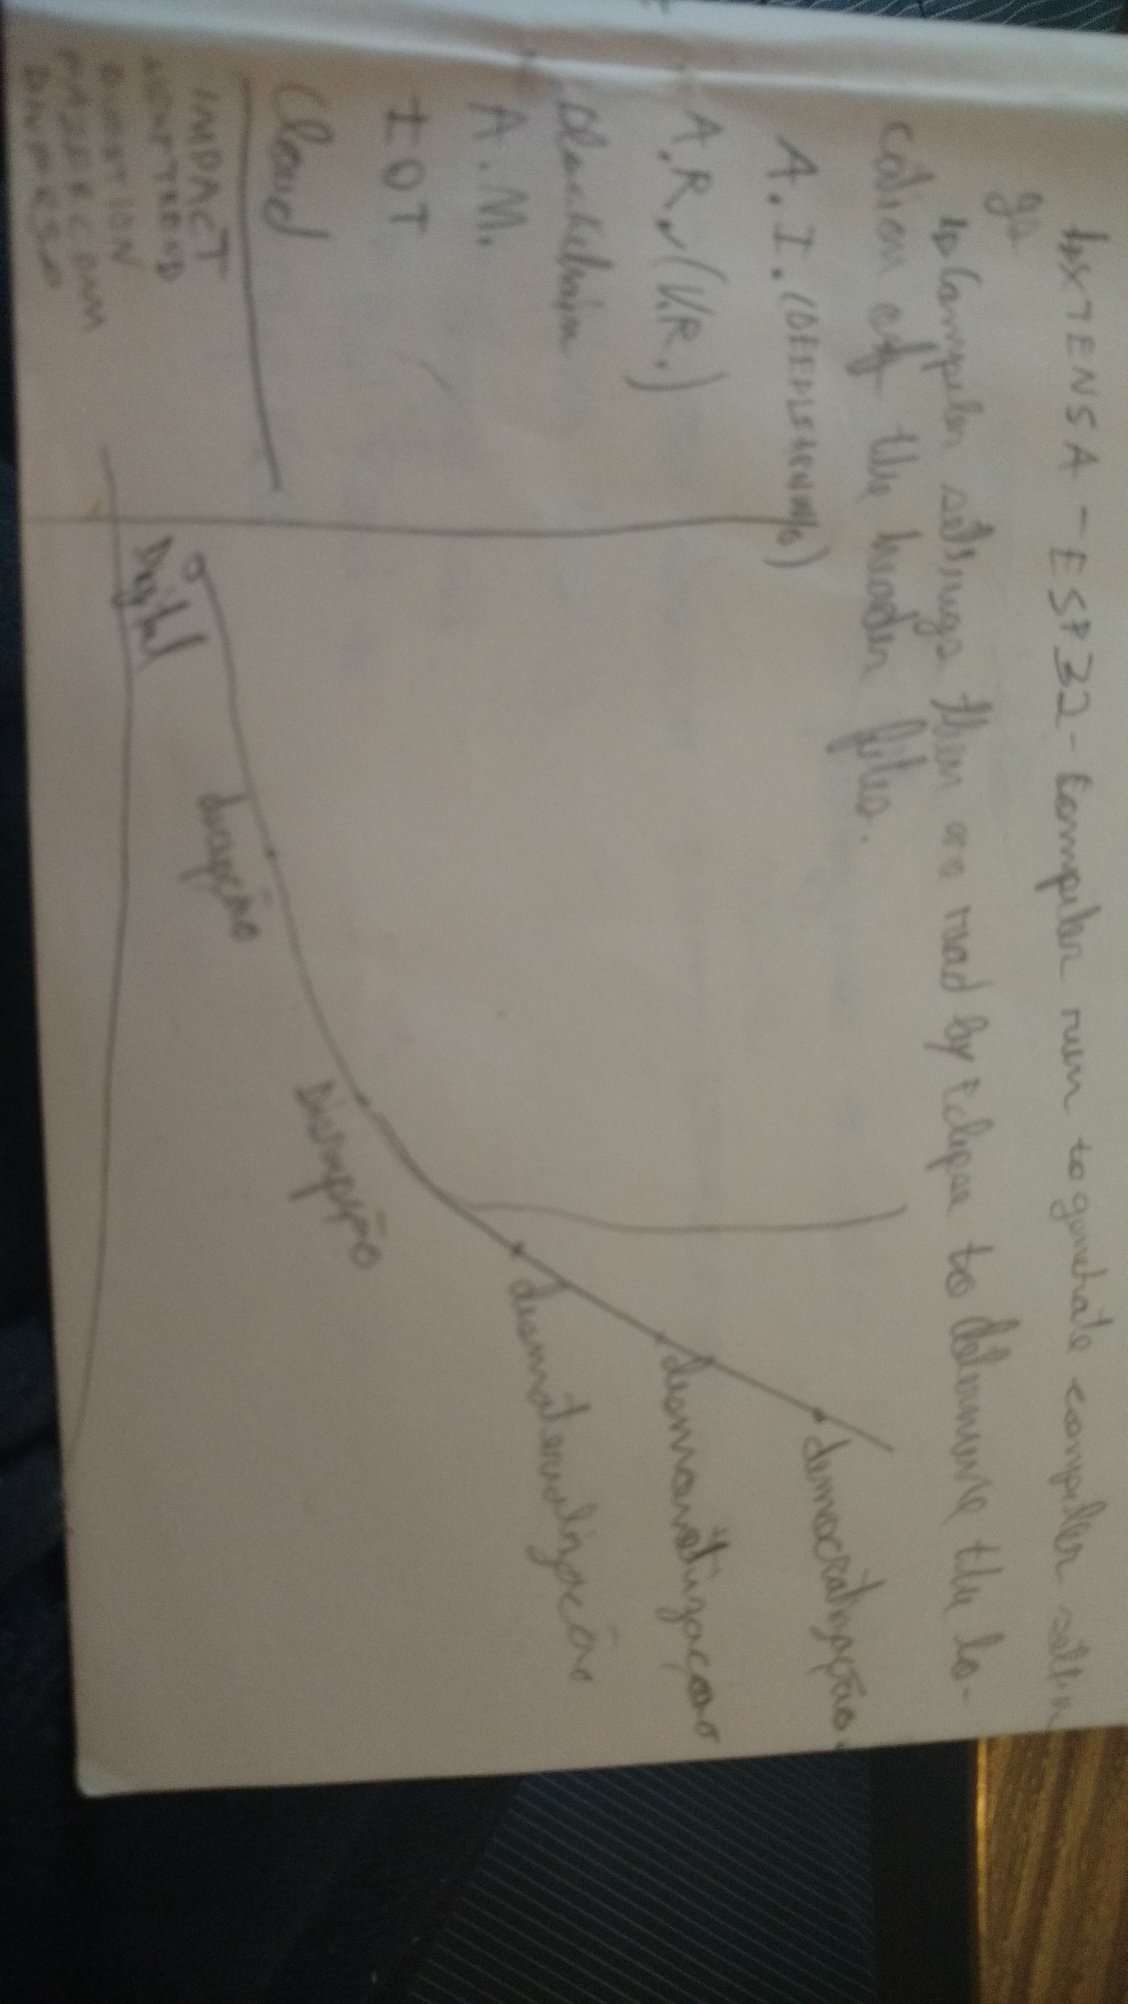 ↳XTENSA-ESP32-Compiler run to generate compiler settin
gs
↳Compiler settings then are read by Eclipse to determine the lo-
cation of the header files.
A.I. (DEEPLEARNING)
A.R./(V.R.)
Blockchain
A.M.
IOT
Cloud
IMPACT
QUESTION
democratização.
desmonetização
desmaterialização
Disrupção
Digital